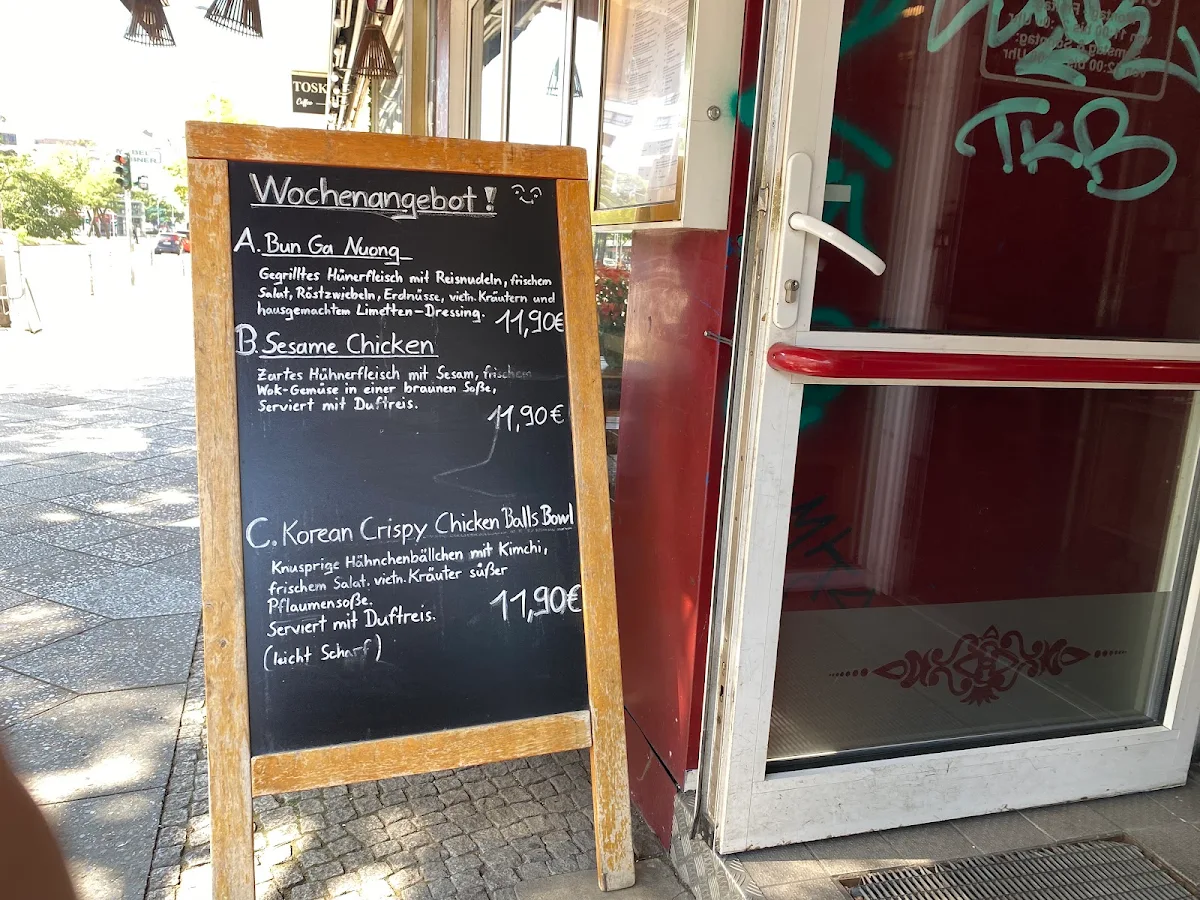 TOSK
Coffee
Wochenangebot!
A. Bun Ga Nuong
Gegrilltes Hünerfleisch mit Reisnudeln, frischem
Salat, Röstzwiebeln, Erdnüsse, vietn. Kräutern und
hausgemachtem Limetten-Dressing.
11,90€
B. Sesame Chicken
Zartes Hühnerfleisch mit Sesam, frischem
Wok-Gemüse in einer braunen Soße,
Serviert mit Duftreis.
11,90€
C. Korean Crispy Chicken Balls Bowl
Knusprige Hähnchenbällchen mit Kimchi,
frischem Salat. vietn. Kräuter süßer
Pflaumensoße.
11,90€
Serviert mit Duftreis.
(leicht Scharf)
TKB